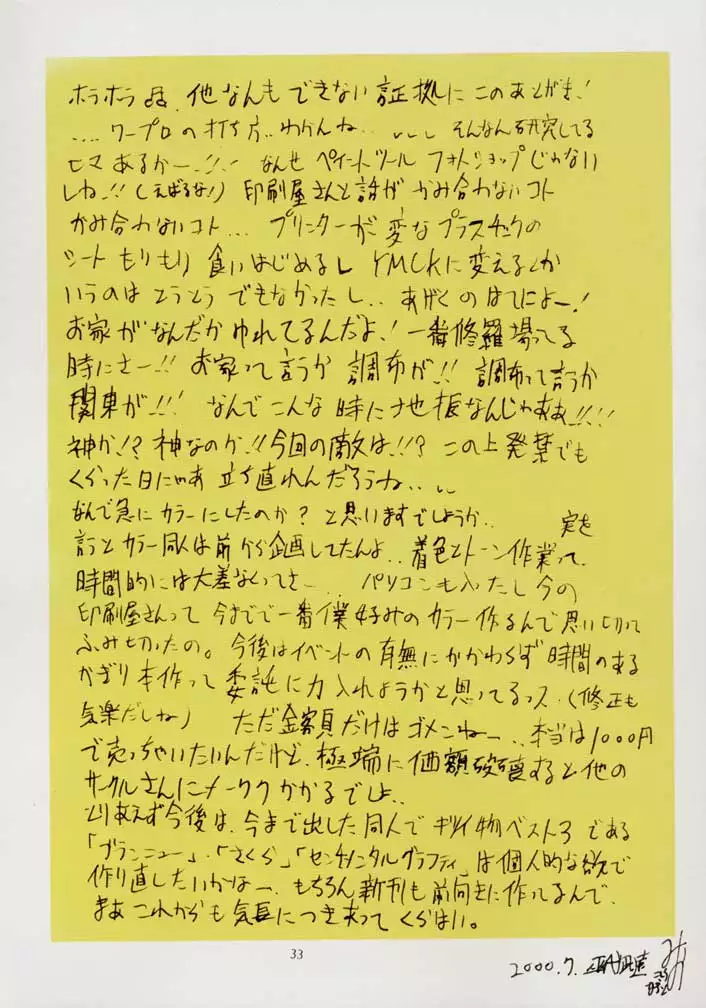 ホラホラ 他なんもできない証拠にこのあとがき!
....ワープロの打ち方..わかんね.. ....そんなん研究してる
ヒマあるかー..!!.! なんせペイントツールフォトショップじゃない
しね..!!(えばるな!) 印刷屋さんと話がかみ合わないコト
かみ合わないコト... プリンターが変なプラスチックの
シートもりもり食いはじめるし YMCKに変えるとか
いうのはとうとうできなかったし.. あげくのはてによー.!
お家がなんだかゆれてるんだよ.! 一番修羅場ってる
時にさー..!! お家って言うか調布が.!! 調布って言うか
関東が.!!! なんでこんな時に地振なんじゃああ!!.!!
神か.!? 神なのか.!! 今回の敵は.!!? この上発禁でも
くらった日にゃあ立ち直れんだろうね.. ...
なんで急にカラーにしたのか? と思いますでしょうか.. 実を
言うとカラー同人は前から企画してたんよ..着色とトーン作業って、
時間的には大差なくってさ-... パソコンも入ったし今の
印刷屋さんって今までで一番僕好みのカラー作るんで思い切って
ふみ切ったの。今後はイベントの有無にかかわらず時間のある
かぎり本作って委託に力入れようかと思ってるっス.(修正も
気楽だしね) ただ金額だけはゴメンねー...本当は1000円
で売っちゃいたいんだけど、極端に価額破壊すると他の
サークルさんにメーワクかかるでしょ..
とりあえず今後は、今まで出した同人でキツイ物ベスト3である
「ブランニュー」・「さくら」「センチメンタルグラフティ」は個人的な欲で
作り直したいかなー、もちろん新刊も前向きに作ってるんで、
まあこれからも気長につき合ってくらはい。
33
2000.7.